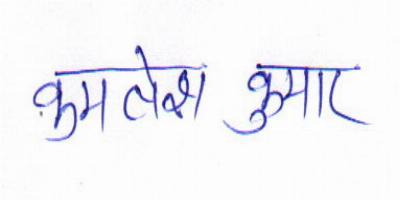 कमलेश कुमार